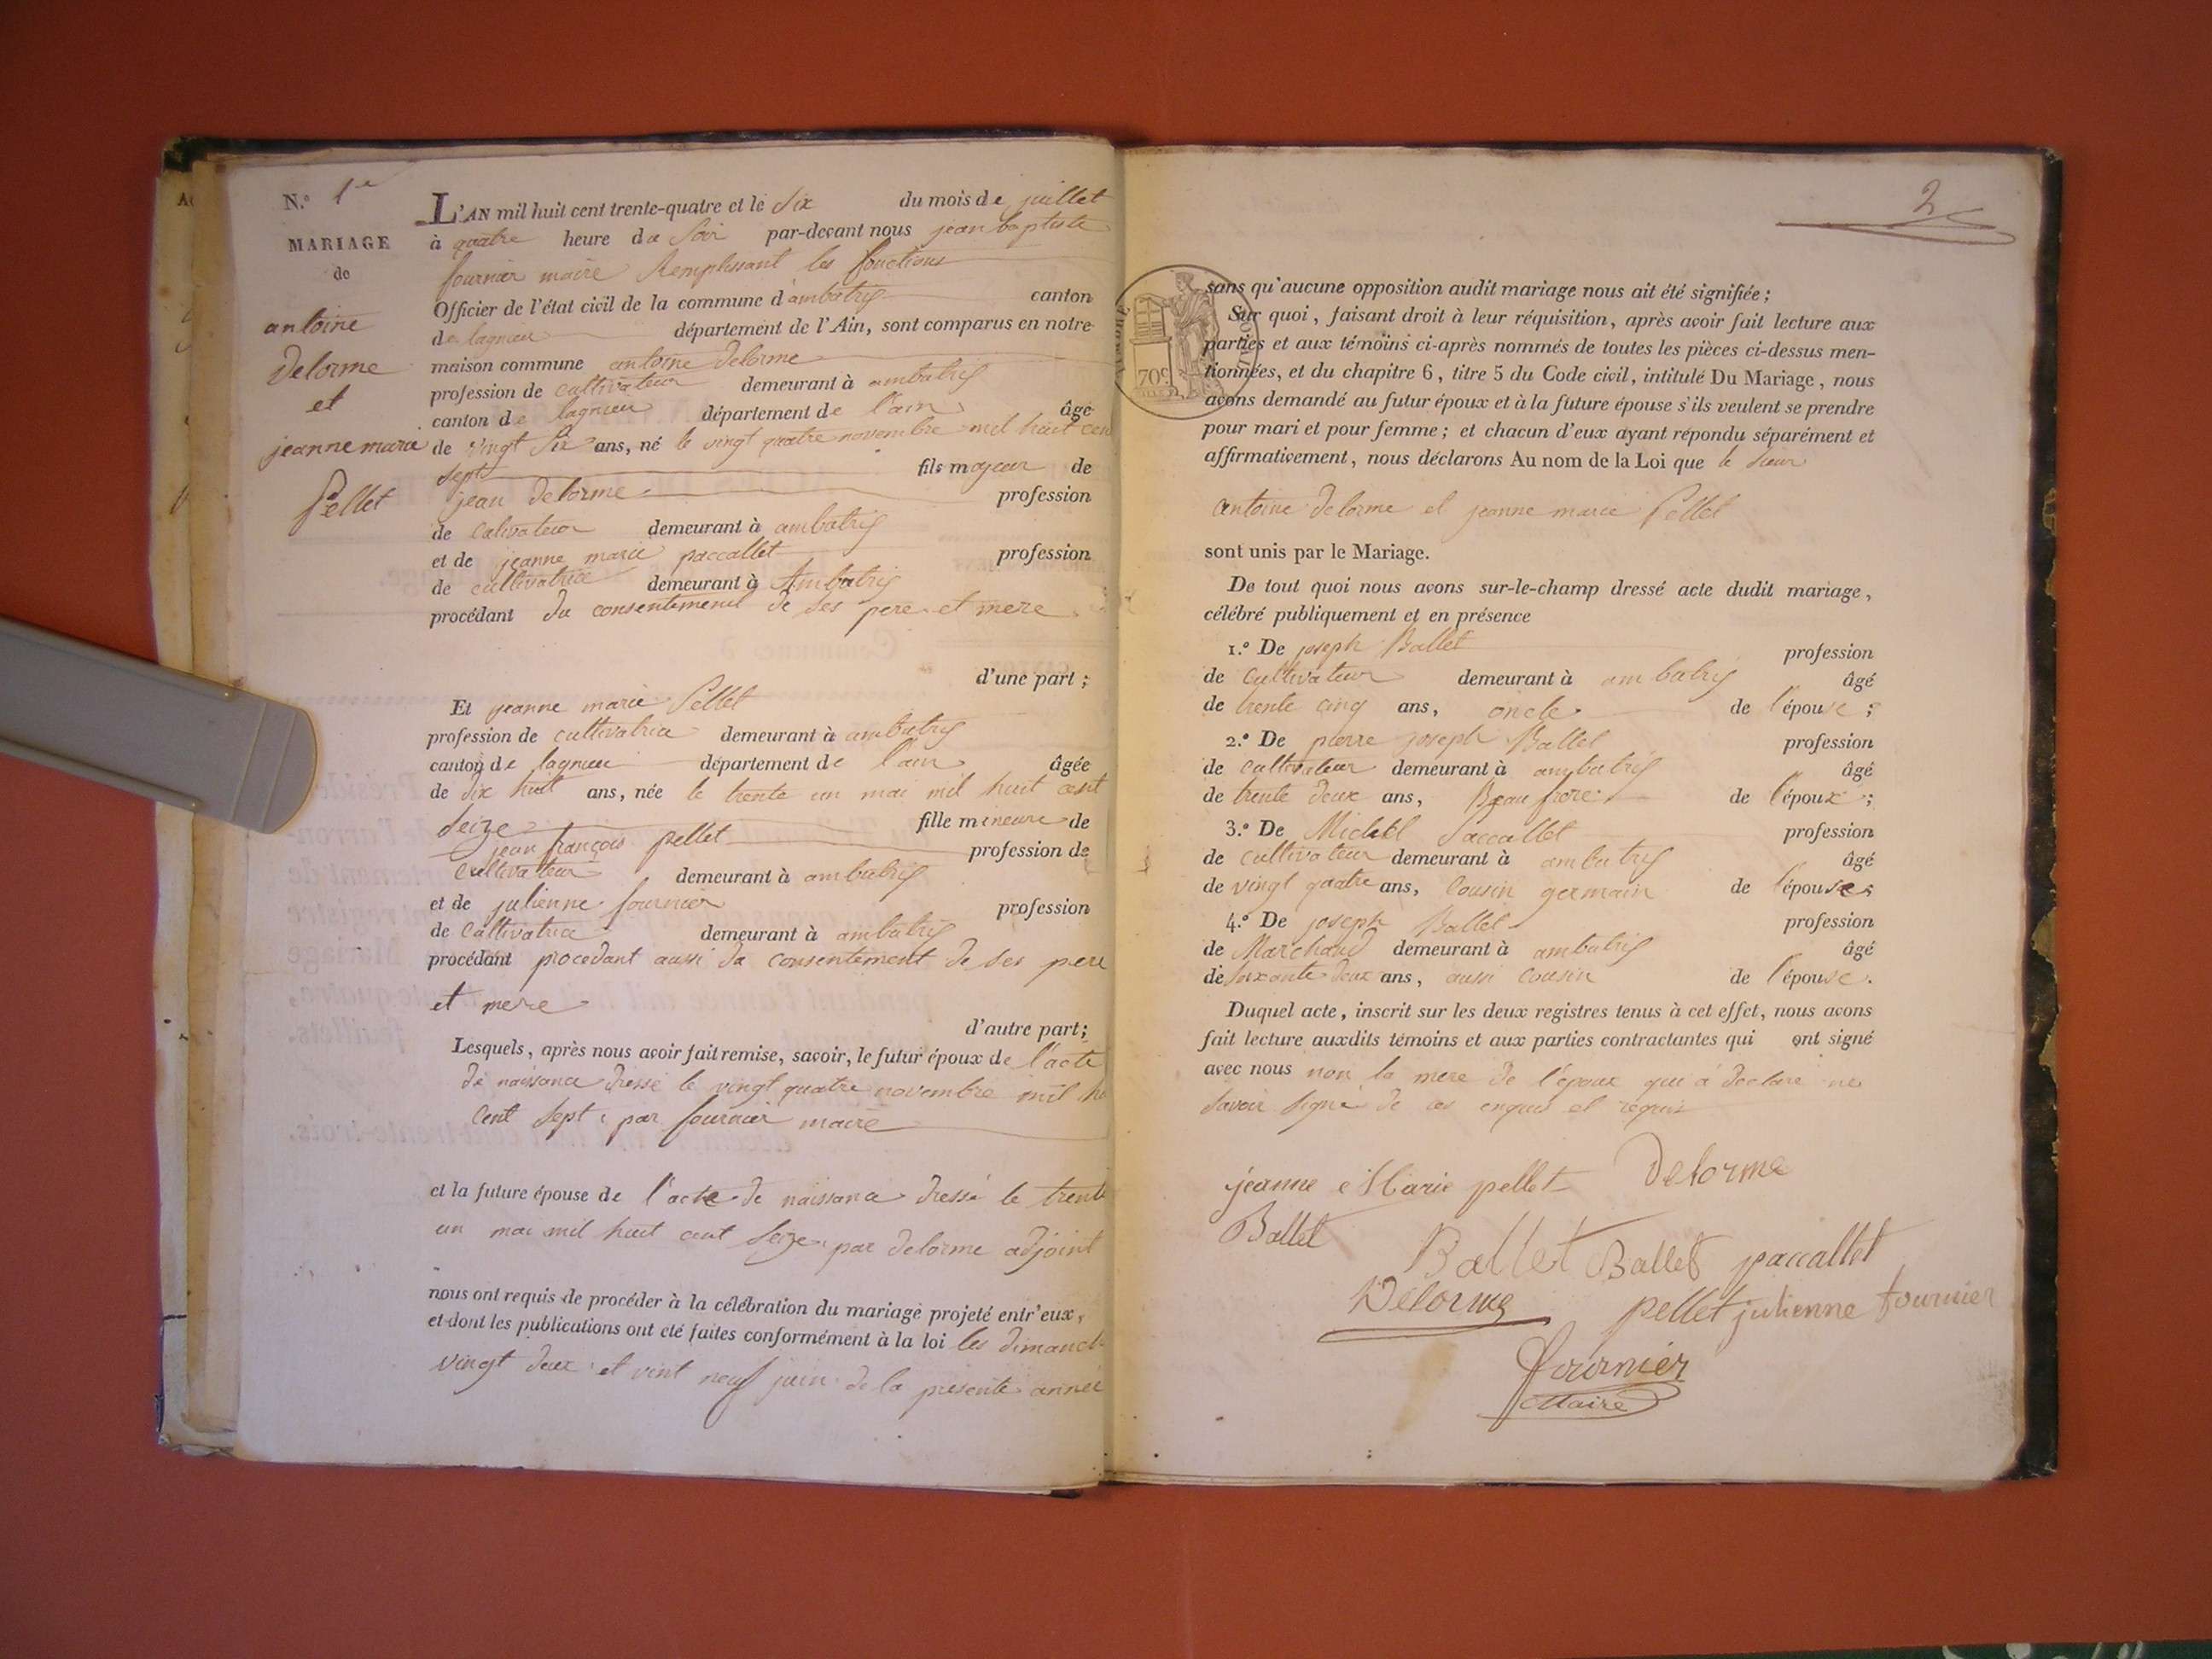 N.° 1er
MARIAGE
de
antoine
Delorme
et
jeanne marie
Pellet
L'AN mil huit cent trente-quatre et le Six du mois de juillet
à quatre heure du Soir par-devant nous jean baptiste
fournier maire Remplissant les fonctions
Officier de l'état civil de la commune d'ambutrix canton
de lagnieu département de l'Ain, sont comparus en notre
maison commune antoine Delorme
profession de cultivateur demeurant à ambutrix
canton de lagnieu département de l'ain âgé
de vingt Six ans, né le vingt quatre novembre mil huit cen
sept fils majeur de
jean delorme profession
de Cultivateur demeurant à ambutrix
et de jeanne marie paccallet profession
de cultivatrice demeurant à Ambutrix
procédant du consentement de ses pere et mere
d'une part ;
Et jeanne marie Pellet
profession de cultivatrice demeurant à ambutrix
canton de lagnieu département de l'ain âgée
de dix huit ans, née le trente un mai mil huit cent
Seize fille mineure de
jean françois pellet profession de
Cultivateur demeurant à ambutrix
et de julienne fournier profession
de Cultivatrice demeurant à ambutrix
procédant procedant aussi du consentement de ses pere
et mere
d'autre part;
Lesquels, après nous avoir fait remise, savoir, le futur époux de l'acte
de naissance dressé le vingt quatre novembre mil hu
Cent Sept par fournier maire
et la future épouse de l'acte de naissance dressé le trente
un mai mil huit cent Seize par delorme adjoint
nous ont requis de procéder à la célébration du mariage projeté entr'eux,
et dont les publications ont été faites conformément à la loi les dimanch
vingt deux et vint neuf juin de la presente année
2
70c
sans qu'aucune opposition audit mariage nous ait été signifiée ;
Sur quoi, faisant droit à leur réquisition, après avoir fait lecture aux
parties et aux témoins ci-après nommés de toutes les pièces ci-dessus men-
tionnées, et du chapitre 6, titre 5 du Code civil, intitulé Du Mariage, nous
avons demandé au futur époux et à la future épouse s'ils veulent se prendre
pour mari et pour femme ; et chacun d'eux ayant répondu séparément et
affirmativement, nous déclarons Au nom de la Loi que le Sieur
antoine Delorme et jeanne marie Pellet
sont unis par le Mariage.
De tout quoi nous avons sur-le-champ dressé acte dudit mariage,
célébré publiquement et en présence
1.° De joseph Ballet profession
de Cultivateur demeurant à ambutrix âgé
de trente cinq ans, oncle de l'épouse ;
2.° De pierre joseph Ballet profession
de Cultivateur demeurant à ambutrix âgé
de trente deux ans, Beau frere de l'époux ;
3.° De Michel Paccallet profession
de cultivateur demeurant à ambutrix âgé
de vingt quatre ans, Cousin germain de l'épouse ;
4.° De joseph Ballet profession
de Marchand demeurant à ambutrix âgé
de Soixante deux ans, aussi Cousin de l'épouse.
Duquel acte, inscrit sur les deux registres tenus à cet effet, nous avons
fait lecture auxdits témoins et aux parties contractantes qui ont signé
avec nous non la mere de l'époux qui a declaré ne
Savoir Signé de ce enquis et requis
jeanne Marie pellet Delorme
Ballet Ballet Ballet paccallet
Delorme pellet julienne fournier
fournier
Maire